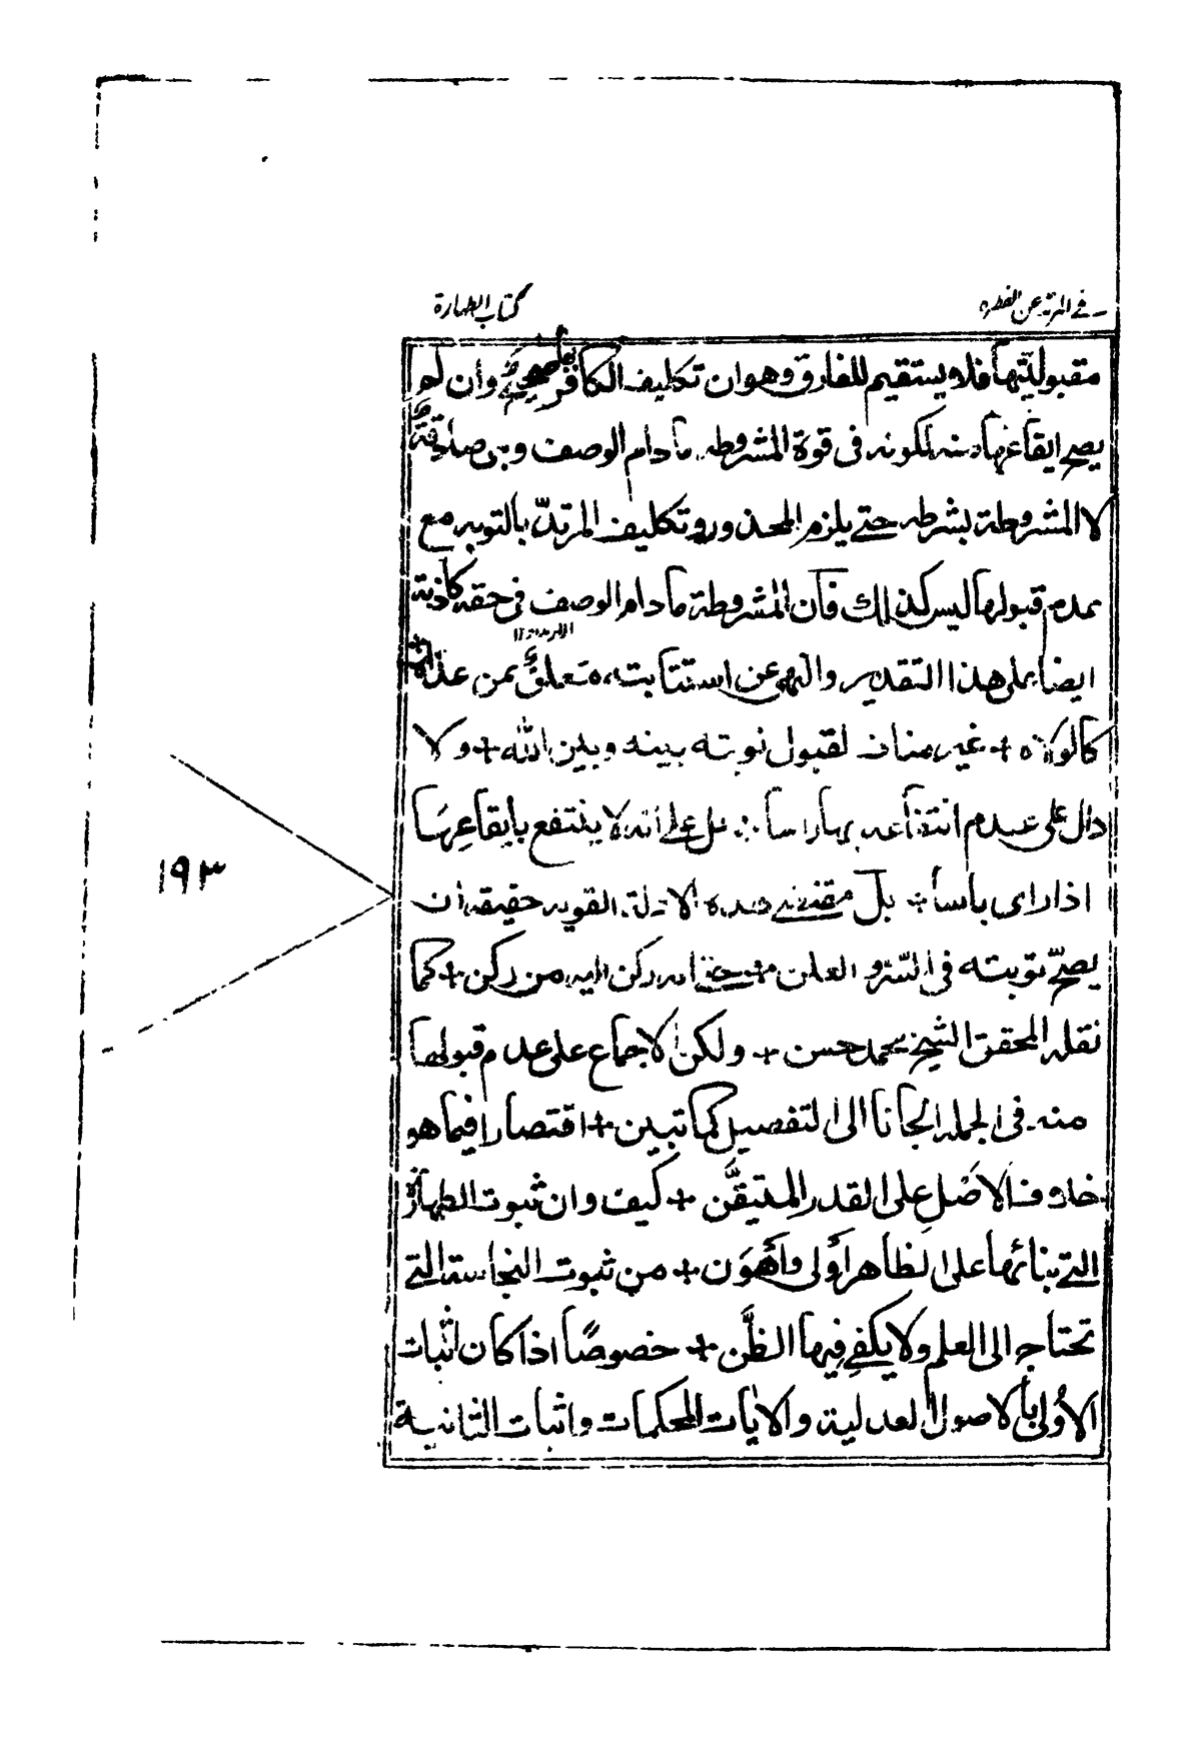 في المرتد عن الفطره
كتاب الطهارة
مقبوليتها فلا يستقيم للفارق وهو ان تكليف الكافر صحيح وأن لم
يصح ايقاعها منه لكونه فى قوة المشروطه مادام الوصف وهى صادقة
لا المشروطة بشرطه حتى يلزم المحذور وتكليف المرتدّ بالتوبه مع
عدم قبولها ليس كذلك فأن المشروطة مادام الوصف فى حقه كاذبة
ايضا على هذا التقدير والنهى عن استتابته متعلقٌ بمن عداه
كالولاه + غير مناف لقبول توبته بينه وبين الله + ولا
دال على عدم انتفاعه بها راسا + على أنه لا ينتفع بايقاعها
اذا راى بأسا + بل مقتضى هذه الادلة القويه حقيقة ان
يصحّ توبته فى السّر والعلن + ركن اليه من ركن + كما
نقله المحقق الشيخ محمد حسن + ولكن الاجماع على عدم قبولها
منه فى الجمله الجأنا الى التفصيل كما تبين + اقتصارا فيما هو
خلاف الاصل على القدر المتيقَّن + كيف وان ثبوت الطهارة
التى بنائها على الظاهر أولى وأهوَن + من ثبوت النجاسة التى
تحتاج الى العلم ولا يكفى فيها الظَّن + خصوصًا اذا كان اثبات
الأولى بالاصول العدلية والايات المحكمات واثبات الثانية
١٩٣